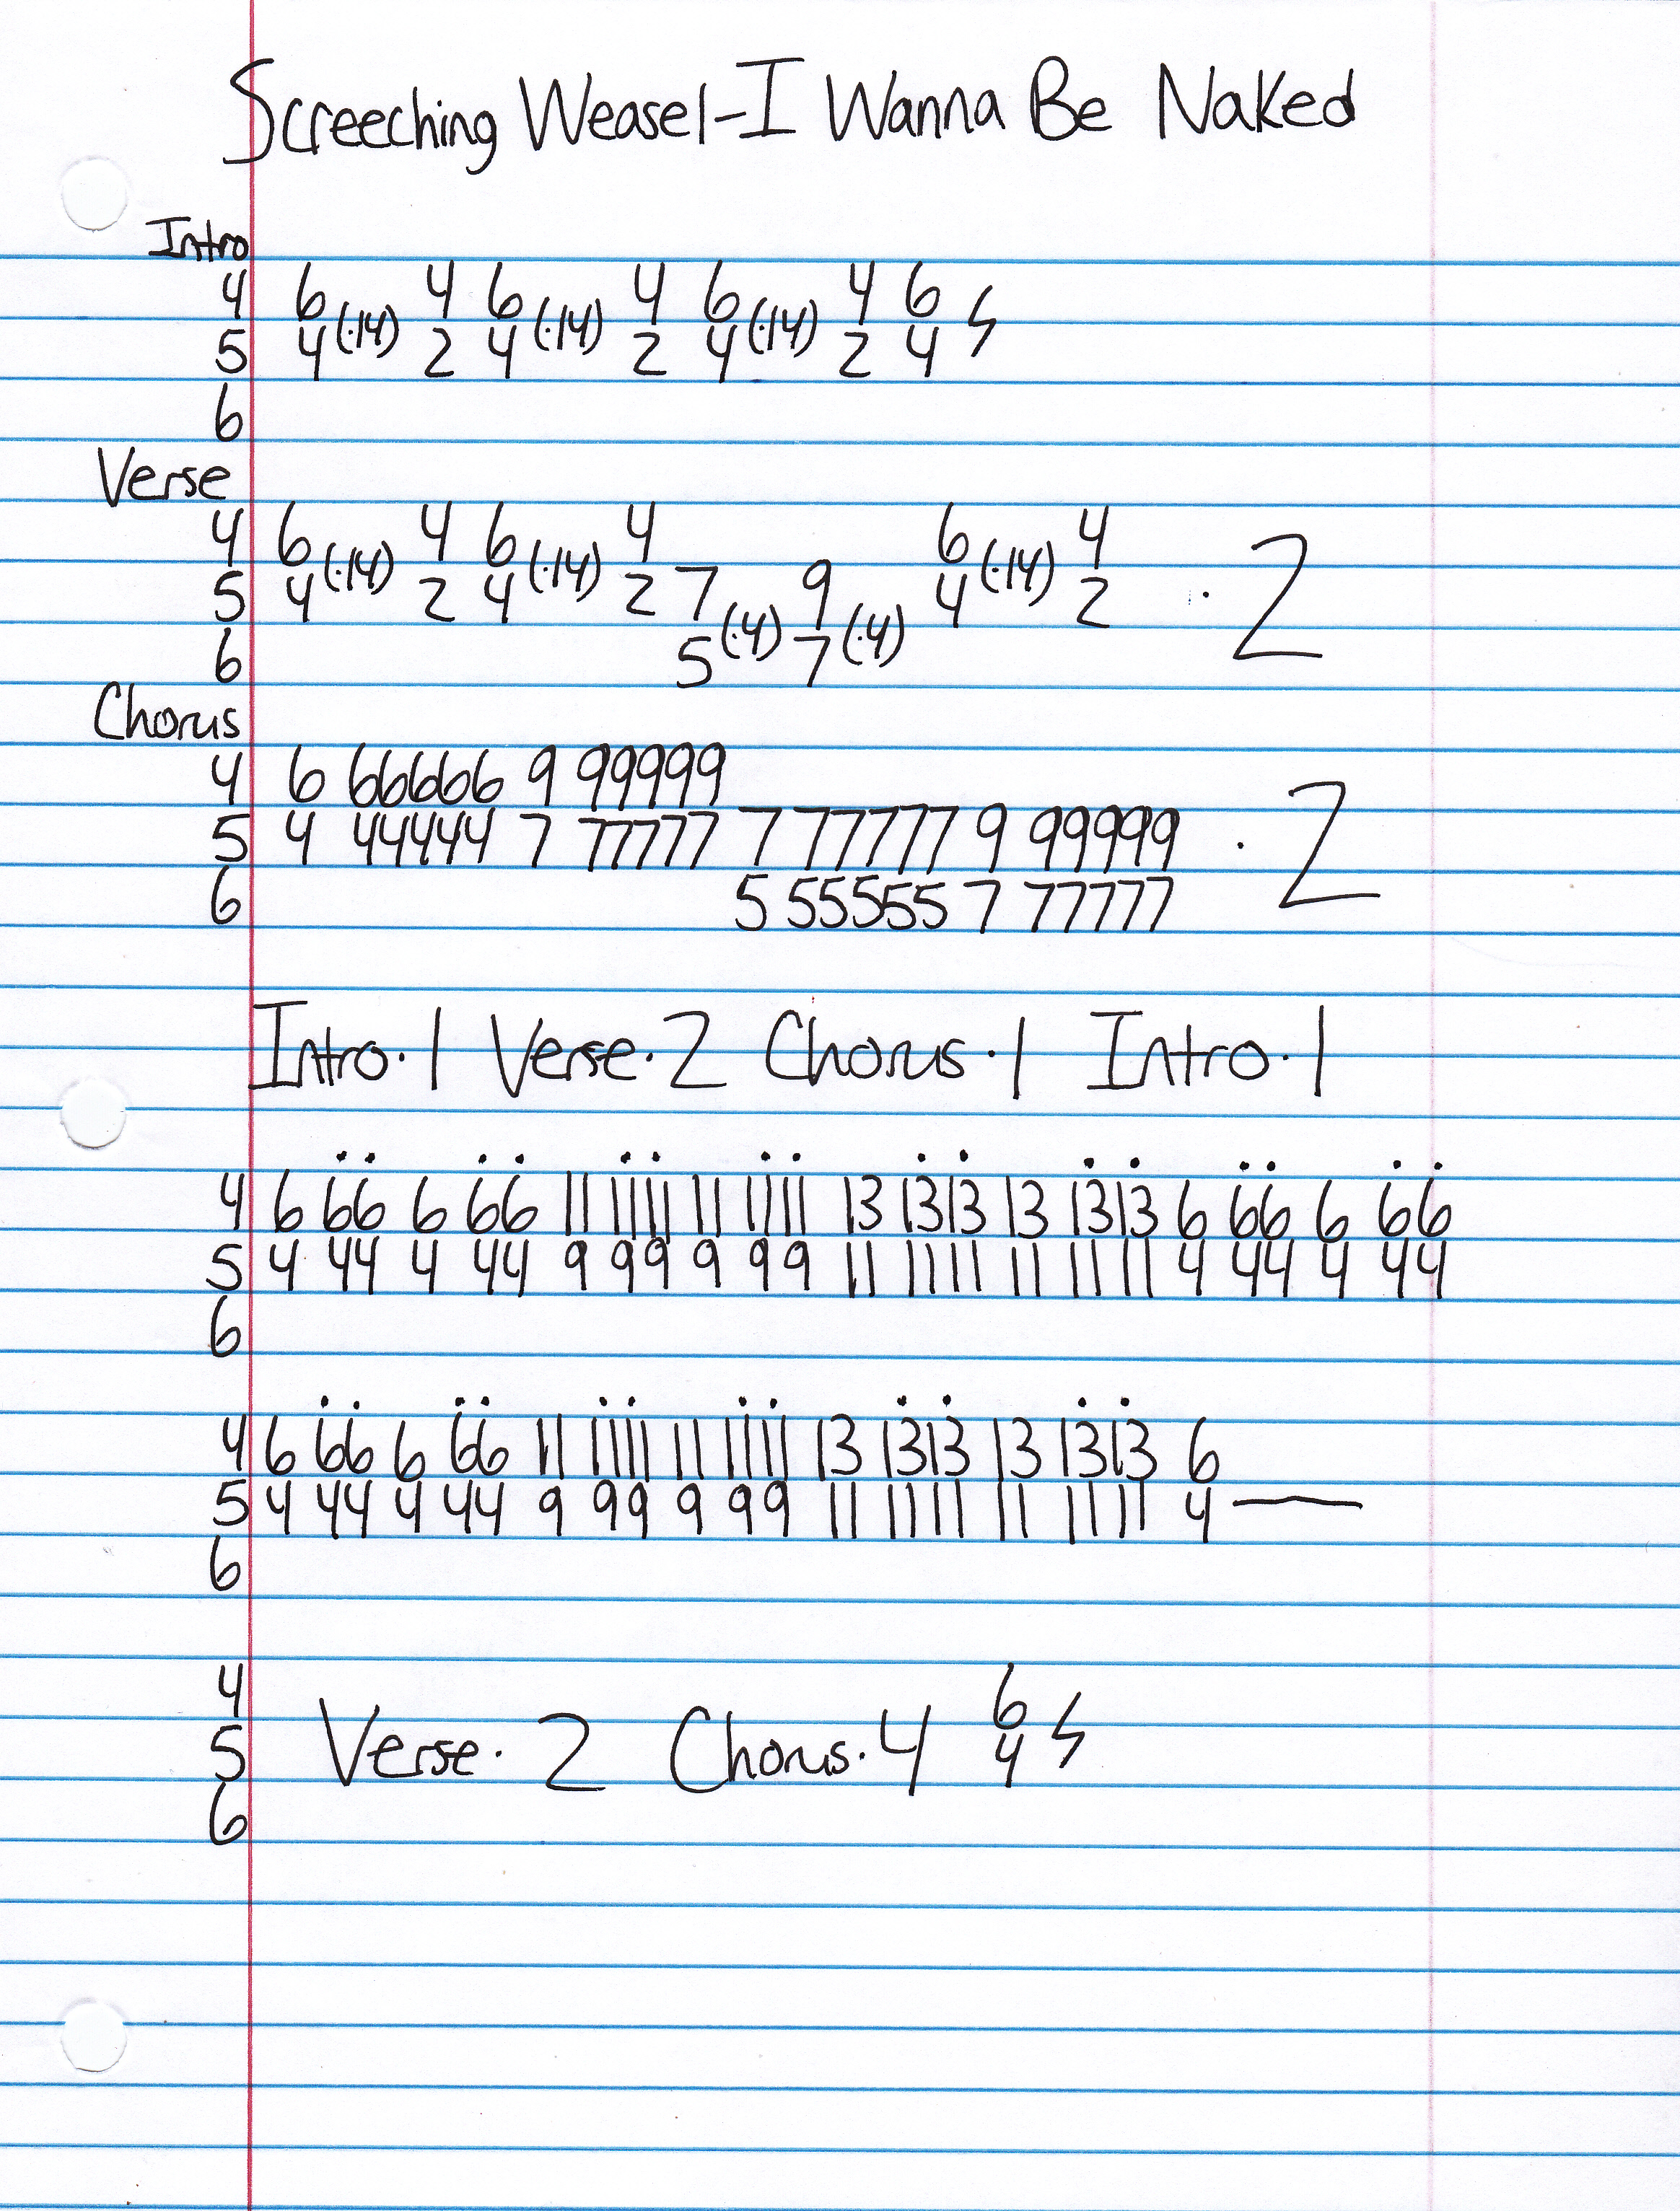 Screeching Weasel-I Wanna Be Naked
Intro
4 6 4 6 4 6 4 6
5 4(·14) 2 4(·14) 2 4(·14) 2 4 ϟ
6
Verse
4 6 4 6 4 6 4
5 4(·14) 2 4(·14) 2 7 9 4(·14) 2 · 2
6 5(·4) 7(·4)
Chorus
4 6 66666 9 99999
5 4 44444 7 77777 7 77777 9 99999 · 2
6 5 55555 7 77777
Intro·1 Verse·2 Chorus·1 Intro·1
4 6 66 6 66 11 1111 11 1111 13 1313 13 1313 6 66 6 66
5 4 44 4 44 9 99 9 99 11 1111 11 1111 4 44 4 44
6
4 6 66 6 66 11 1111 11 1111 13 1313 13 1313 6
5 4 44 4 44 9 99 9 99 11 1111 11 1111 4 —
6
4 6
5 Verse·2 Chorus·4 4 ϟ
6